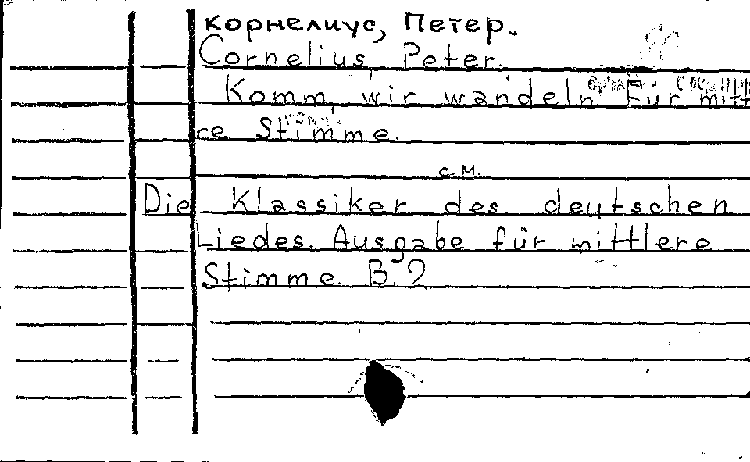 Корнелиус, Петер.
Cornelius, Peter.
Komm, wir wandeln Für mitt
re Stimme.
с.м.
Die Klassiker des deutschen
Liedes. Ausgabe für mittlere
Stimme B.2